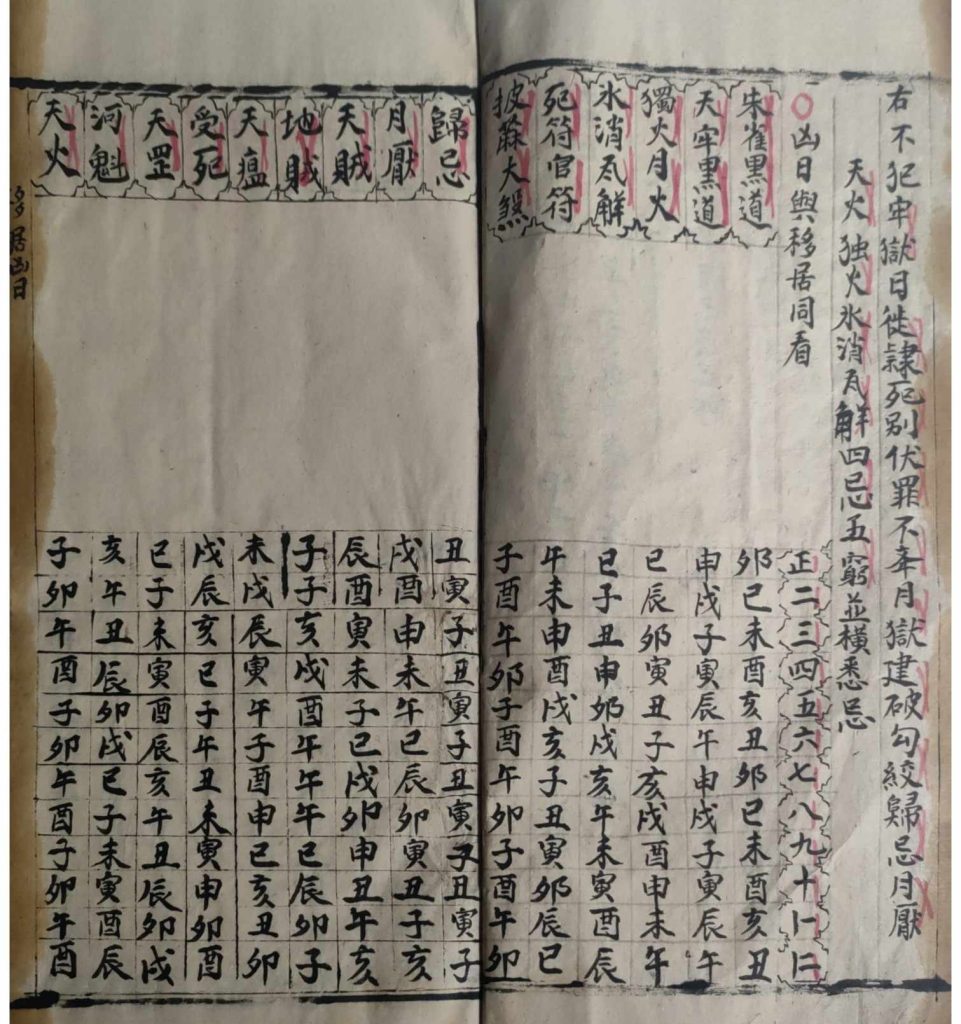 右不犯牢獄日徙隷死别伏罪不夆月獄建破勾絞歸忌月厭
天火独火氷消瓦解四忌五窮並橫悉忌
○凶日與移居同看
正二三四五六七八九十十一十二
朱雀黑道 卯巳未酉亥丑卯巳未酉亥丑
天牢黒道 申戌子寅辰午申戌子寅辰午
獨火月火 巳辰卯寅丑子亥戌酉申未午
氷消瓦解 巳子丑申卯戌亥午未寅酉辰
死符官符 午未申酉戌亥子丑寅卯辰巳
披蔴大煞 子酉午卯子酉午卯子酉午卯
歸忌 丑寅子丑寅子丑寅子丑寅子
月厭 戌酉申未午巳辰卯寅丑子亥
天賊 辰酉寅未子巳戌卯申丑午亥
地賊 子子亥戌酉午午午巳辰卯子
天瘟 未戌辰寅午子酉申巳亥丑卯
受死 戌辰亥巳子午丑未寅申卯酉
天罡 巳子未寅酉辰亥午丑辰卯戌
河魁 亥午丑辰卯戌巳子未寅酉辰
天火 子卯午酉子卯午酉子卯午酉
移居凶日